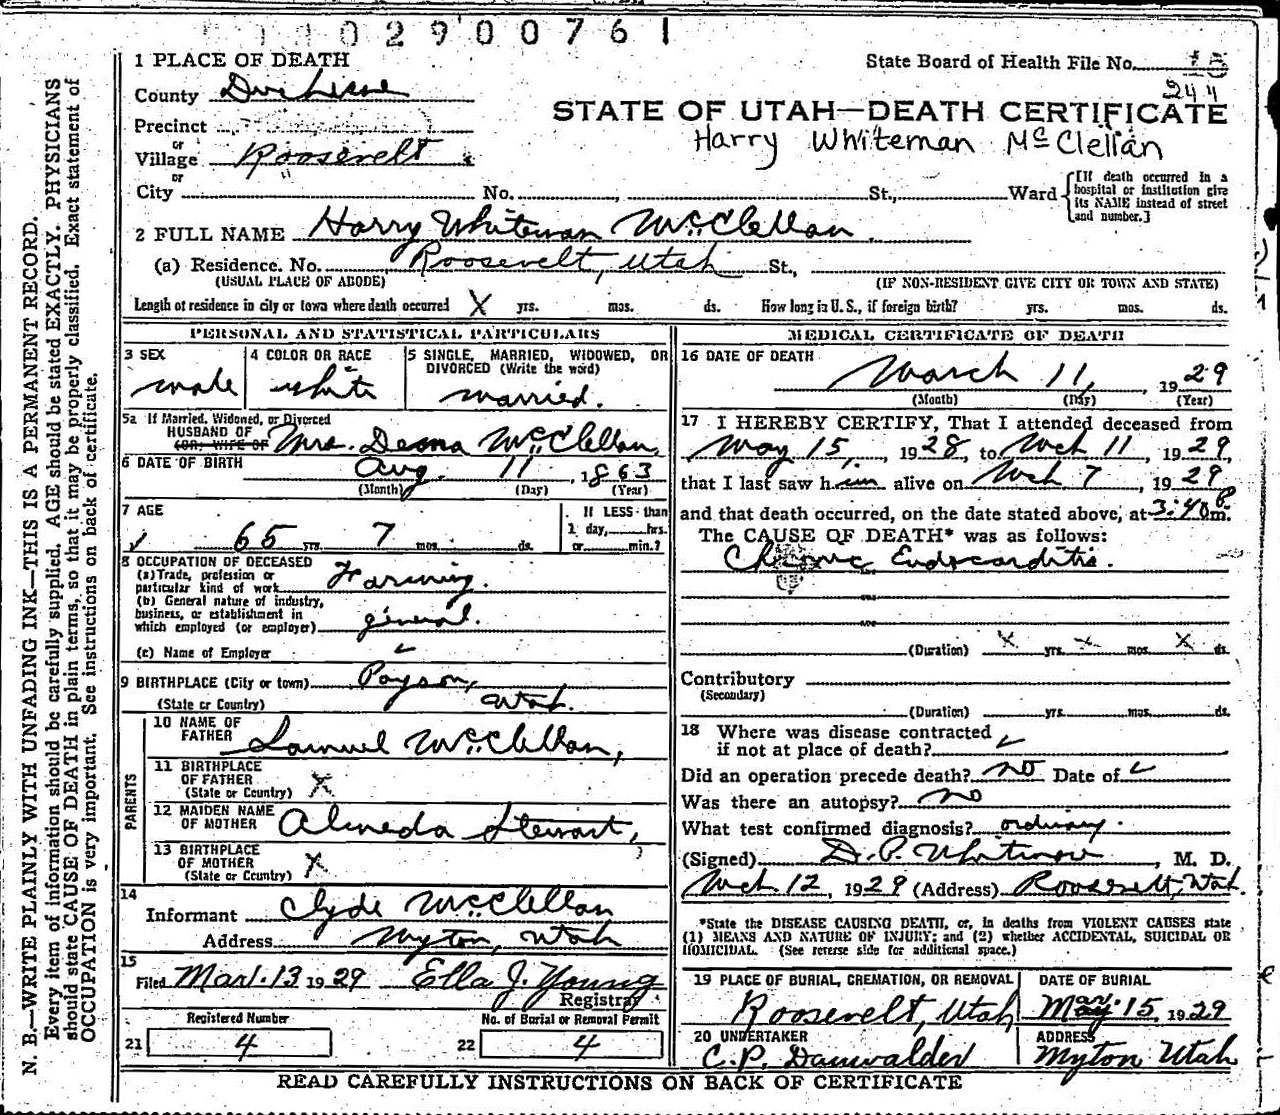 02900761
1 PLACE OF DEATH
State Board of Health File No. 13
244
County Duchesne
STATE OF UTAH—DEATH CERTIFICATE
Precinct
Harry Whiteman McClellan
or
Village Roosevelt
or
City No. St., Ward
[If death occurred in a hospital or institution give its NAME instead of street and number.]
2 FULL NAME Harry Whiteman McClellan
(a) Residence. No. Roosevelt, Utah St.,
(USUAL PLACE OF ABODE) (IF NON-RESIDENT GIVE CITY OR TOWN AND STATE)
Length of residence in city or town where death occurred X yrs. mos. ds. How long in U.S., if foreign birth? yrs. mos. ds.
PERSONAL AND STATISTICAL PARTICULARS
3 SEX male
4 COLOR OR RACE white
5 SINGLE, MARRIED, WIDOWED, OR DIVORCED (Write the word) married.
5a If Married, Widowed, or Divorced
HUSBAND OF
(OR) WIFE OF Mrs. Deona McClellan,
6 DATE OF BIRTH Aug. 11, 1863
(Month) (Day) (Year)
7 AGE
65 yrs. 7 mos. ds.
If LESS than
1 day, hrs.
or min.?
8 OCCUPATION OF DECEASED
(a) Trade, profession or
particular kind of work Farming.
(b) General nature of industry,
business, or establishment in
which employed (or employer) general.
(c) Name of Employer
9 BIRTHPLACE (City or town) Payson,
(State or Country) Utah.
PARENTS
10 NAME OF
FATHER Samuel McClellan,
11 BIRTHPLACE
OF FATHER
(State or Country) X
12 MAIDEN NAME
OF MOTHER Almeda Stewart,
13 BIRTHPLACE
OF MOTHER
(State or Country) X
14
Informant Clyde McClellan
Address Myton, Utah
15
Filed Mar. 13 1929 Ella J. Young
Registrar
Registered Number No. of Burial or Removal Permit
21 4 22 4
MEDICAL CERTIFICATE OF DEATH
16 DATE OF DEATH
March 11, 1929
(Month) (Day) (Year)
17 I HEREBY CERTIFY, That I attended deceased from
May 15, 1928, to Mch 11 1929,
that I last saw him alive on Mch 7, 1929
and that death occurred, on the date stated above, at 3:40 P m.
The CAUSE OF DEATH* was as follows:
Chronic Endocarditis.
(Duration) X yrs. X mos. X ds.
Contributory
(Secondary)
(Duration) yrs. mos. ds.
18 Where was disease contracted
if not at place of death?
Did an operation precede death? no Date of
Was there an autopsy? no
What test confirmed diagnosis? ordinary.
(Signed) D. P. Whitmore, M. D.
Mch 12, 1929 (Address) Roosevelt, Utah.
*State the DISEASE CAUSING DEATH, or, in deaths from VIOLENT CAUSES state
(1) MEANS AND NATURE OF INJURY; and (2) whether ACCIDENTAL, SUICIDAL OR
HOMICIDAL. (See reverse side for additional space.)
19 PLACE OF BURIAL, CREMATION, OR REMOVAL DATE OF BURIAL
Roosevelt, Utah Mar 15, 1929
20 UNDERTAKER ADDRESS
C. P. Dannwalder Myton Utah
READ CAREFULLY INSTRUCTIONS ON BACK OF CERTIFICATE
N. B.—WRITE PLAINLY WITH UNFADING INK—THIS IS A PERMANENT RECORD.
Every item of information should be carefully supplied. AGE should be stated EXACTLY. PHYSICIANS
should state CAUSE OF DEATH in plain terms, so that it may be properly classified. Exact statement of
OCCUPATION is very important. See instructions on back of certificate.